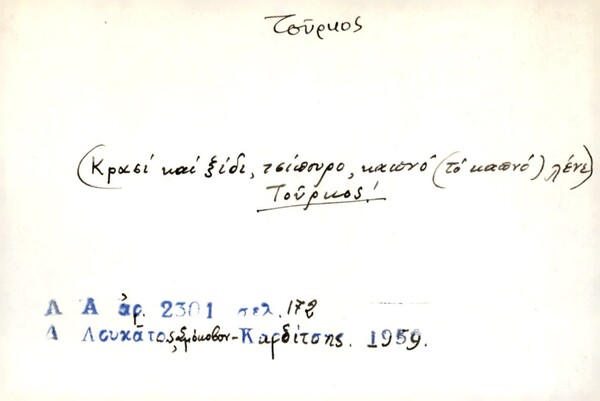 Τοῦρκος
(Κρασί καί ξίδι, τσίπουρο, καπνό (τό καπνό) λένε)
Τοῦρκος!
Λ Α ἀρ. 2301 σελ. 172
Δ Λουκᾶτος, Σμόκοβον-Καρδίτσης. 1959.